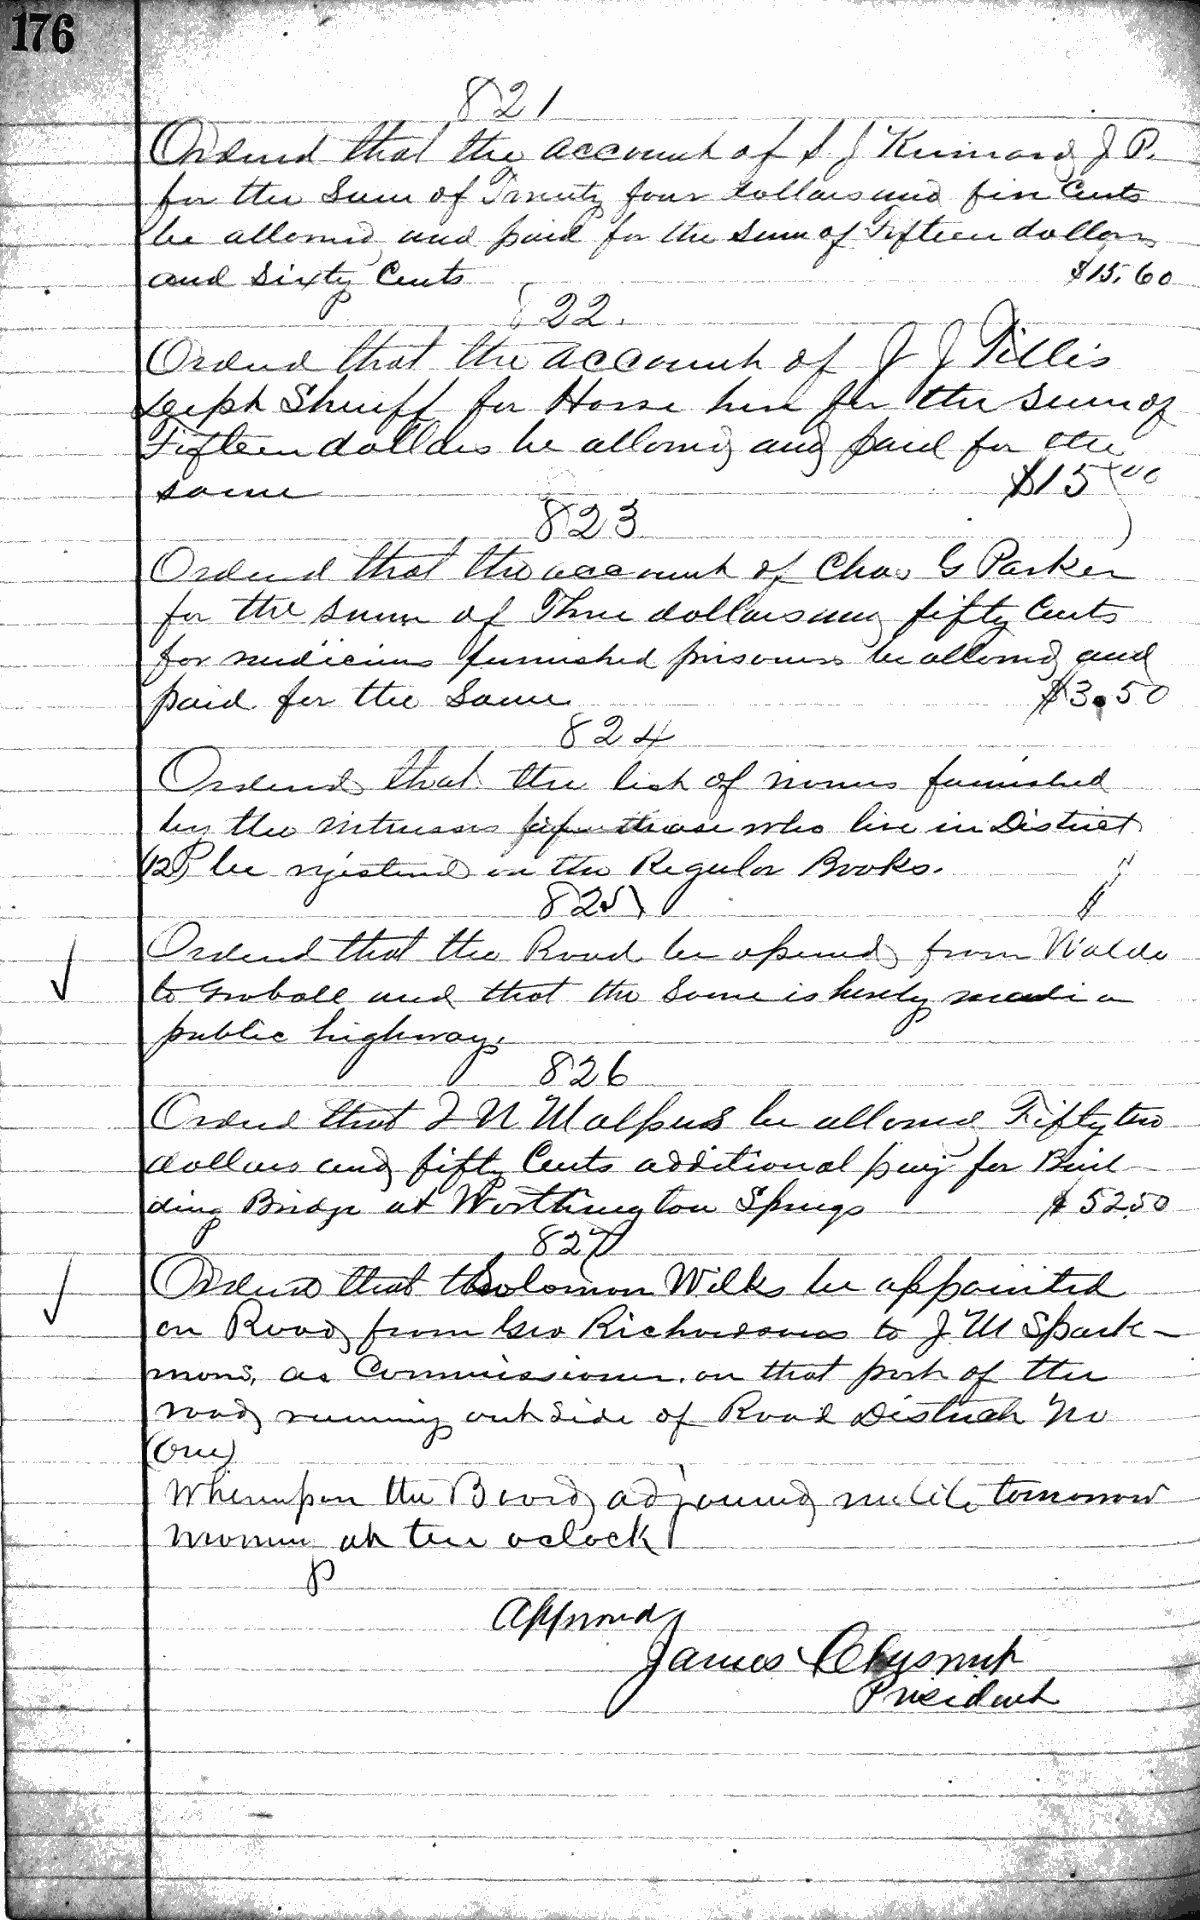 176
821
Ordered that the account of S. J Kinnard J P.
for the Sum of Twenty four dollars and five Cents
be allowed and paid for the sum of Fifteen dollars
and Sixty Cents $15.60
822.
Ordered that the account of J J Tillis
Sheriff for Horse hire for the sum of
Fifteen dollars be allowed and paid for the
same $15.00
823
Ordered that the account of Chas G Parker
for the sum of Three dollars and fifty Cents
for medicines furnished prisoners be allowed and
paid for the Same $3.50
824
Ordered that the list of names furnished
by the witnesses those who live in District
12 be registered on the Regular Books.
825
Ordered that the Road be opened from Waldo
to and that the Same is hereby made a
public highway.
826
Ordered that be allowed Fifty two
dollars and fifty Cents additional pay for Buil-
ding Bridge at Worthington Springs $52.50
827
Ordered that Solomon Wilks be appointed
on Road from Geo Richardsons to J M Spark-
mans, as Commissioner. on that part of the
road running out Side of Road District No
(One)
Whereupon the Board adjourned until tomorrow
morning at ten oclock
Approved
James Chesnut
President